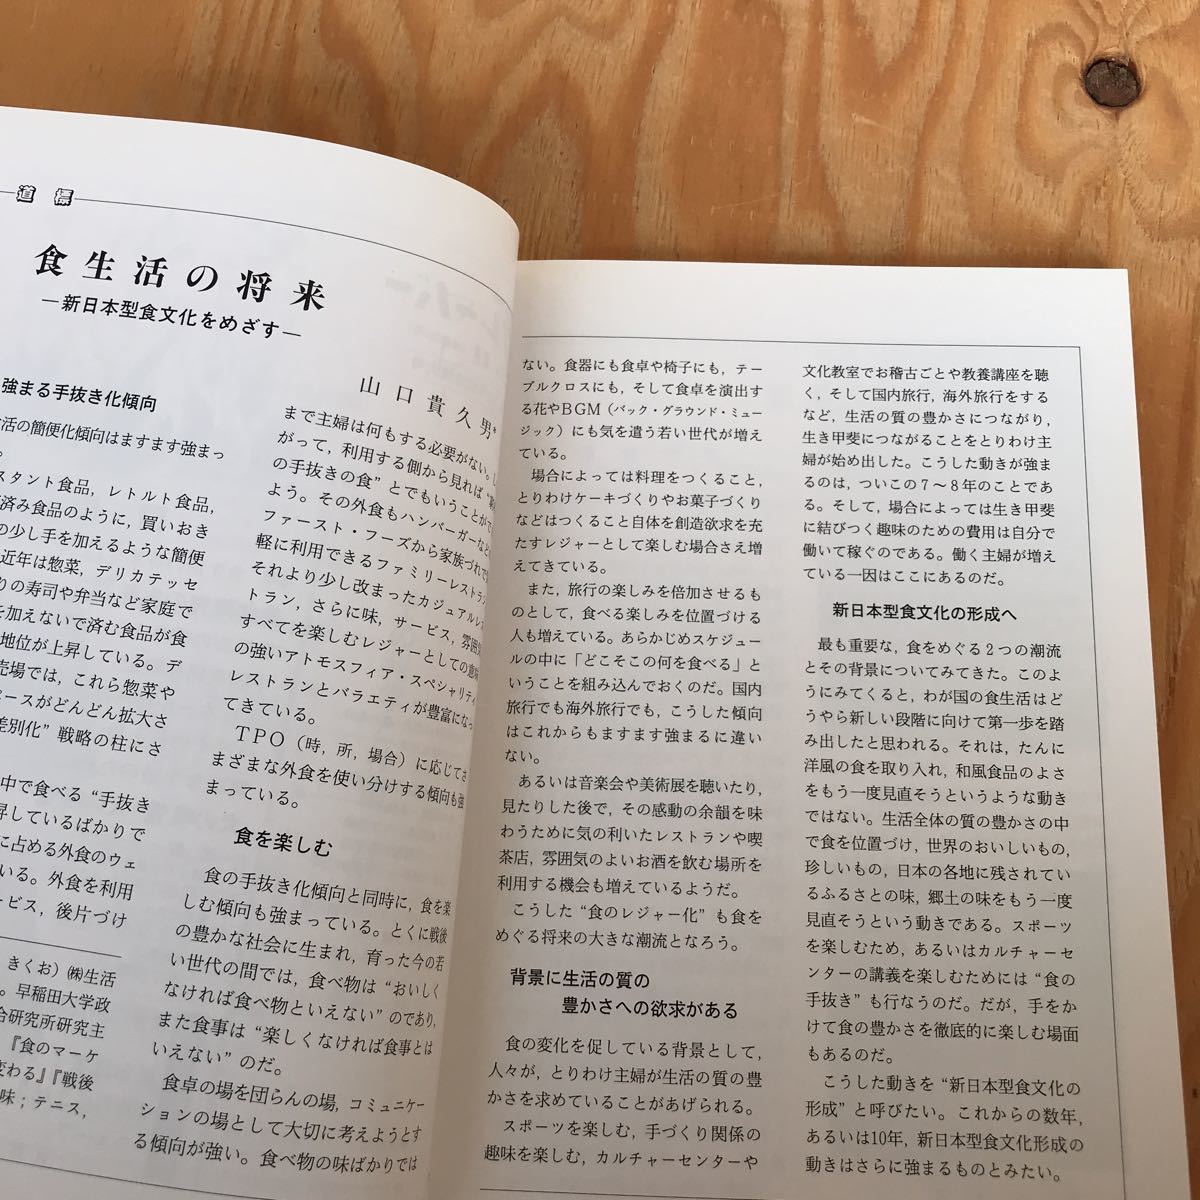 道標
食生活の将来
―新日本型食文化をめざす―
山口貴久男*
強まる手抜き化傾向
活の簡便化傾向はますます強まっ
。
スタント食品，レトルト食品，
済み食品のように，買いおき
の少し手を加えるような簡便
近年は惣菜，デリカテッセ
りの寿司や弁当など家庭で
を加えないで済む食品が食
地位が上昇している。デ
売場では，これら惣菜や
ペースがどんどん拡大さ
差別化”戦略の柱にさ
中で食べる“手抜き
昇しているばかりで
に占める外食のウェ
いる。外食を利用
ービス，後片づけ
きくお）㈱生活
。早稲田大学政
合研究所研究主
『食のマーケ
変わる』『戦後
味；テニス，
まで主婦は何もする必要がない。し
がって，利用する側から見れば“
の手抜きの食”とでもいうことがで
よう。その外食もハンバーガーなど
ファースト・フーズから家族づれで
軽に利用できるファミリーレストラン
それより少し改まったカジュアルレス
トラン，さらに味，サービス，雰囲気
すべてを楽しむレジャーとしての意味
の強いアトモスフィア・スペシャリティ
レストランとバラエティが豊富になっ
てきている。
TPO（時，所，場合）に応じてさ
まざまな外食を使い分けする傾向も強
まっている。
食を楽しむ
食の手抜き化傾向と同時に，食を楽
しむ傾向も強まっている。とくに戦後
の豊かな社会に生まれ，育った今の若
い世代の間では，食べ物は“おいしく
なければ食べ物といえない”のであり，
また食事は“楽しくなければ食事とは
いえない”のだ。
食卓の場を団らんの場，コミュニケー
ションの場として大切に考えようとす
る傾向が強い。食べ物の味ばかりでは
ない。食器にも食卓や椅子にも，テー
ブルクロスにも，そして食卓を演出す
る花やBGM（バック・グラウンド・ミュー
ジック）にも気を遣う若い世代が増え
ている。
場合によっては料理をつくること，
とりわけケーキづくりやお菓子づくり
などはつくること自体を創造欲求を充
たすレジャーとして楽しむ場合さえ増
えてきている。
また，旅行の楽しみを倍加させるも
のとして，食べる楽しみを位置づける
人も増えている。あらかじめスケジュー
ルの中に「どこそこの何を食べる」と
いうことを組み込んでおくのだ。国内
旅行でも海外旅行でも，こうした傾向
はこれからもますます強まるに違い
ない。
あるいは音楽会や美術展を聴いたり，
見たりした後で，その感動の余韻を味
わうために気の利いたレストランや喫
茶店，雰囲気のよいお酒を飲む場所を
利用する機会も増えているようだ。
こうした“食のレジャー化”も食を
めぐる将来の大きな潮流となろう。
背景に生活の質の
豊かさへの欲求がある
食の変化を促している背景として，
人々が，とりわけ主婦が生活の質の豊
かさを求めていることがあげられる。
スポーツを楽しむ，手づくり関係の
趣味を楽しむ，カルチャーセンターや
文化教室でお稽古ごとや教養講座を聴
く，そして国内旅行，海外旅行をする
など，生活の質の豊かさにつながり，
生き甲斐につながることをとりわけ主
婦が始め出した。こうした動きが強ま
るのは，ついこの7～8年のことであ
る。そして，場合によっては生き甲斐
に結びつく趣味のための費用は自分で
働いて稼ぐのである。働く主婦が増え
ている一因はここにあるのだ。
新日本型食文化の形成へ
最も重要な，食をめぐる2つの潮流
とその背景についてみてきた。このよ
うにみてくると，わが国の食生活はど
うやら新しい段階に向けて第一歩を踏
み出したと思われる。それは，たんに
洋風の食を取り入れ，和風食品のよさ
をもう一度見直そうというような動き
ではない。生活全体の質の豊かさの中
で食を位置づけ，世界のおいしいもの，
珍しいもの，日本の各地に残されてい
るふるさとの味，郷土の味をもう一度
見直そうという動きである。スポーツ
を楽しむため，あるいはカルチャーセ
ンターの講義を楽しむためには“食の
手抜き”も行なうのだ。だが，手をか
けて食の豊かさを徹底的に楽しむ場面
もあるのだ。
こうした動きを“新日本型食文化の
形成”と呼びたい。これからの数年，
あるいは10年，新日本型食文化形成の
動きはさらに強まるものとみたい。